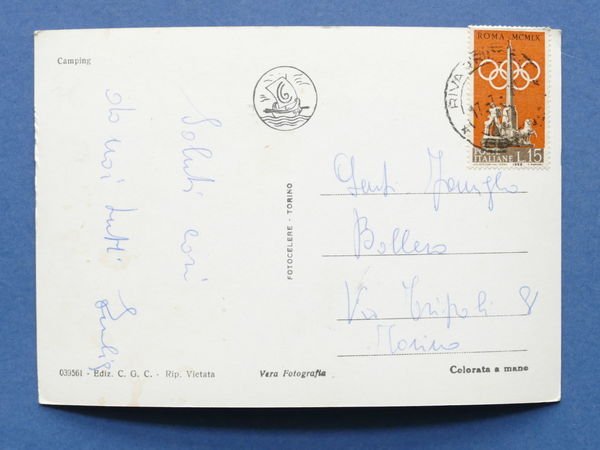 Camping
Saluti cari
da noi tutti
ROMA MCMLX
RIVA
POSTE
ITALIANE L.15
FOTOCELERE - TORINO
Gent. Famiglia
Bollero
Via Tripoli 8
Torino
039561 - Ediz. C. G. C. - Rip. Vietata
Vera Fotografia
Colorata a mano